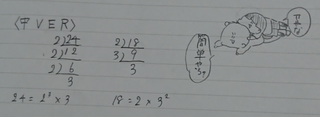 〈甲 VER〉
2)24
2)12
2)6
3
2)18
3)9
3
24 = 2³ × 3
18 = 2 × 3²